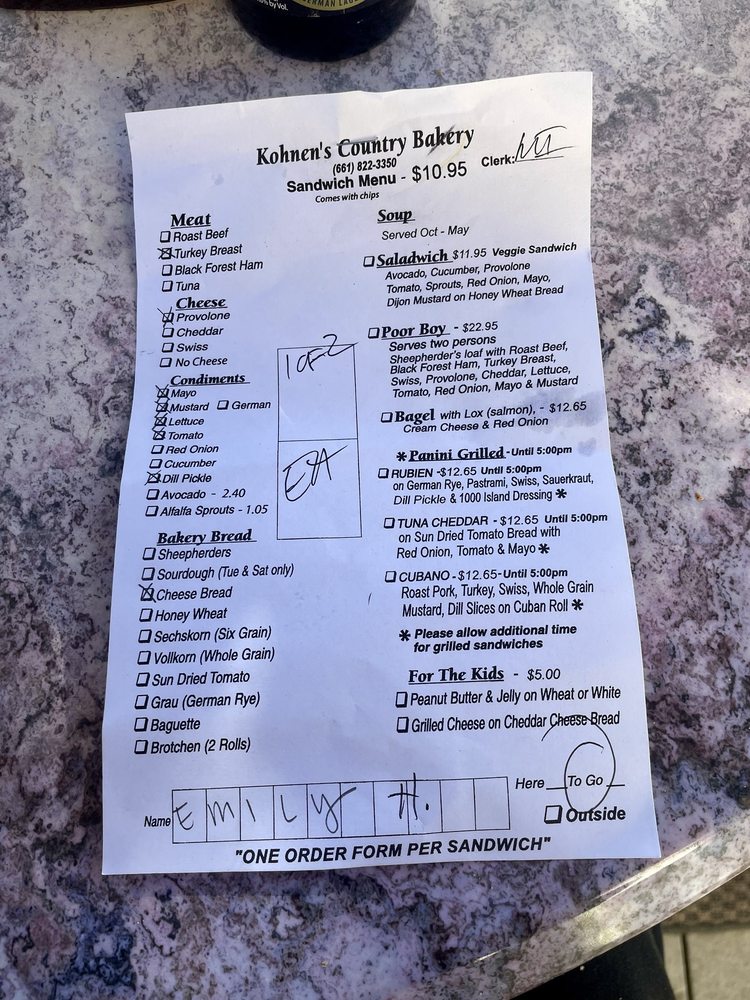 GERMAN LAGER
% by Vol.
Kohnen's Country Bakery
(661) 822-3350
Sandwich Menu - $10.95
Comes with chips
Clerk:
Meat
☐ Roast Beef
☒ Turkey Breast
☐ Black Forest Ham
☐ Tuna
Cheese
☒ Provolone
☐ Cheddar
☐ Swiss
☐ No Cheese
Condiments
☒ Mayo
☒ Mustard ☐ German
☒ Lettuce
☒ Tomato
☐ Red Onion
☐ Cucumber
☒ Dill Pickle
☐ Avocado - 2.40
☐ Alfalfa Sprouts - 1.05
Bakery Bread
☐ Sheepherders
☐ Sourdough (Tue & Sat only)
☒ Cheese Bread
☐ Honey Wheat
☐ Sechskorn (Six Grain)
☐ Vollkorn (Whole Grain)
☐ Sun Dried Tomato
☐ Grau (German Rye)
☐ Baguette
☐ Brotchen (2 Rolls)
1 OF 2
Soup
Served Oct - May
☐ Saladwich $11.95 Veggie Sandwich
Avocado, Cucumber, Provolone
Tomato, Sprouts, Red Onion, Mayo,
Dijon Mustard on Honey Wheat Bread
☐ Poor Boy - $22.95
Serves two persons
Sheepherder's loaf with Roast Beef,
Black Forest Ham, Turkey Breast,
Swiss, Provolone, Cheddar, Lettuce,
Tomato, Red Onion, Mayo & Mustard
☐ Bagel with Lox (salmon), - $12.65
Cream Cheese & Red Onion
* Panini Grilled - Until 5:00pm
☐ RUBIEN -$12.65 Until 5:00pm
on German Rye, Pastrami, Swiss, Sauerkraut,
Dill Pickle & 1000 Island Dressing *
☐ TUNA CHEDDAR - $12.65 Until 5:00pm
on Sun Dried Tomato Bread with
Red Onion, Tomato & Mayo *
☐ CUBANO - $12.65- Until 5:00pm
Roast Pork, Turkey, Swiss, Whole Grain
Mustard, Dill Slices on Cuban Roll *
* Please allow additional time
for grilled sandwiches
For The Kids - $5.00
☐ Peanut Butter & Jelly on Wheat or White
☐ Grilled Cheese on Cheddar Cheese Bread
Here __ To Go __
☐ Outside
Name EMILY H.
"ONE ORDER FORM PER SANDWICH"